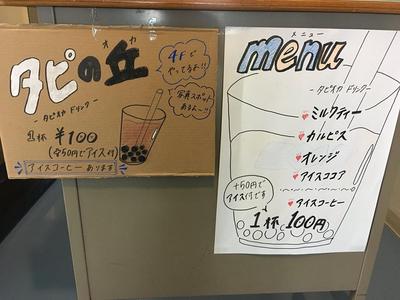 タピの丘
オカ
- タピオカ ドリンク -
1杯 ¥100
(+50円でアイス付)
アイスコーヒー あります
4Fで
やってるよ!!
写真スポット
あるよ~!!
メニュー
menu
- タピオカ ドリンク -
♥ミルクティー
♥カルピス
♥オレンジ
♥アイスココア
♥アイスコーヒー
+50円で
アイス付です
1杯 100円